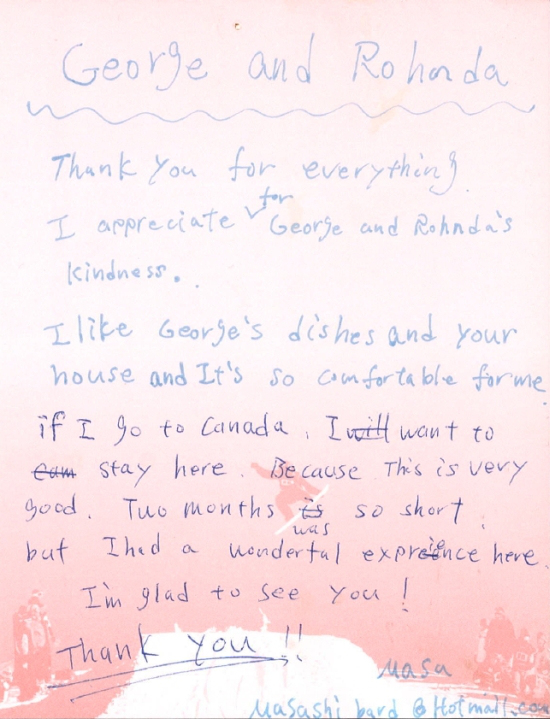 George and Rohnda
Thank you for everything.
I appreciate for George and Rohnda's
kindness.
I like George's dishes and your
house and It's so comfortable for me.
if I go to Canada, I will want to
stay here. Because This is very
good. Two months is was so short,
but I had a wonderful expreience here.
I'm glad to see you!
Thank you!!
Masa
Masashi bard @ Hotmail.com